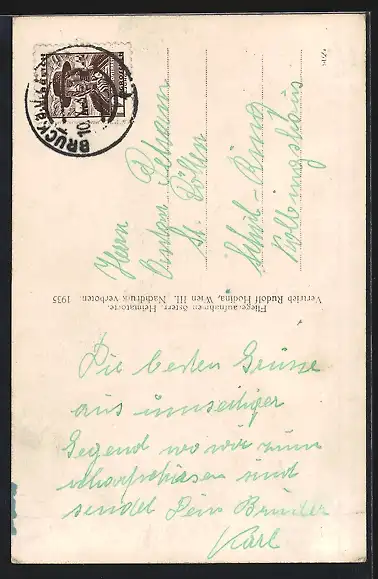 Die besten Grüsse
aus einseitiger
Gegend wo wir zum
scharfschiesen sind
sendet Dein Bruder
Karl
Herrn
Anton
St. Pölten
Schul-Ring
Kolpingshaus
Fliegeraufnahmen österr. Heimatorte.
Vertrieb Rudolf Hodina, Wien III. Nachdruck verboten. 1935
BRUCK a. d.
10